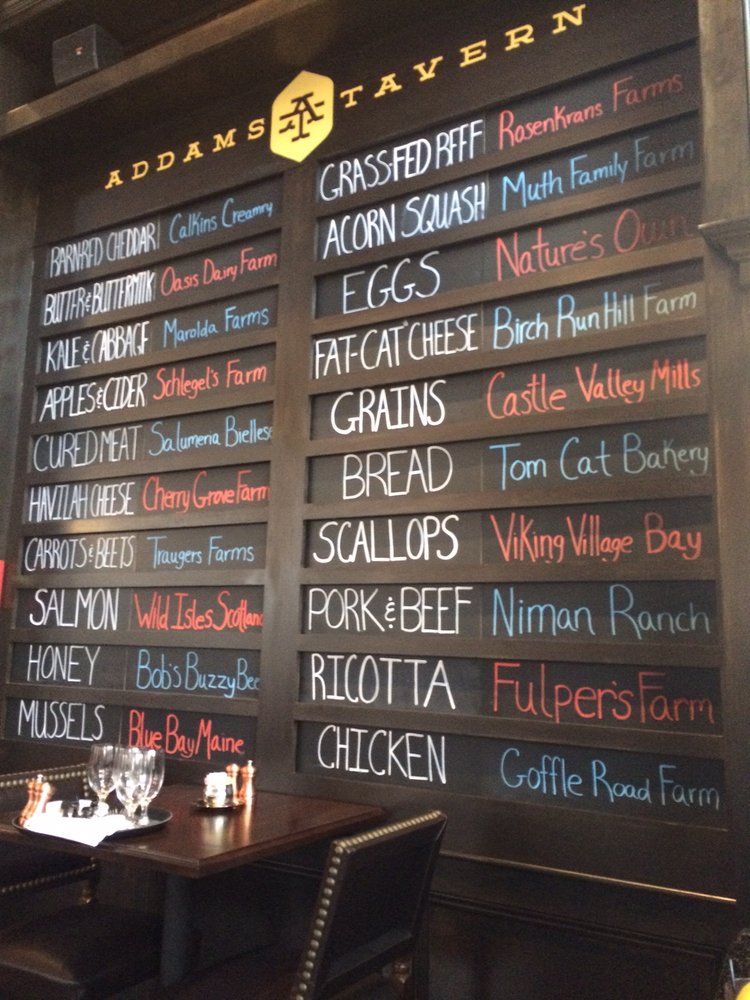 ADDAMS AT TAVERN
BARN-RED CHEDDAR Calkins Creamry
BUTTER & BUTTERMILK Oasis Dairy Farm
KALE & CABBAGE Marolda Farms
APPLES & CIDER Schlegel's Farm
CURED MEAT Salumeria Biellese
HAVILAH CHEESE Cherry Grove Farm
CARROTS & BEETS Traugers Farms
SALMON Wild Isles Scotland
HONEY Bob's Buzzy Bee
MUSSELS Blue Bay Maine
GRASS-FED BEEF Rosenkrans Farms
ACORN SQUASH Muth Family Farm
EGGS Nature's Own
FAT-CAT CHEESE Birch Run Hill Farm
GRAINS Castle Valley Mills
BREAD Tom Cat Bakery
SCALLOPS Viking Village Bay
PORK & BEEF Niman Ranch
RICOTTA Fulper's Farm
CHICKEN Goffle Road Farm